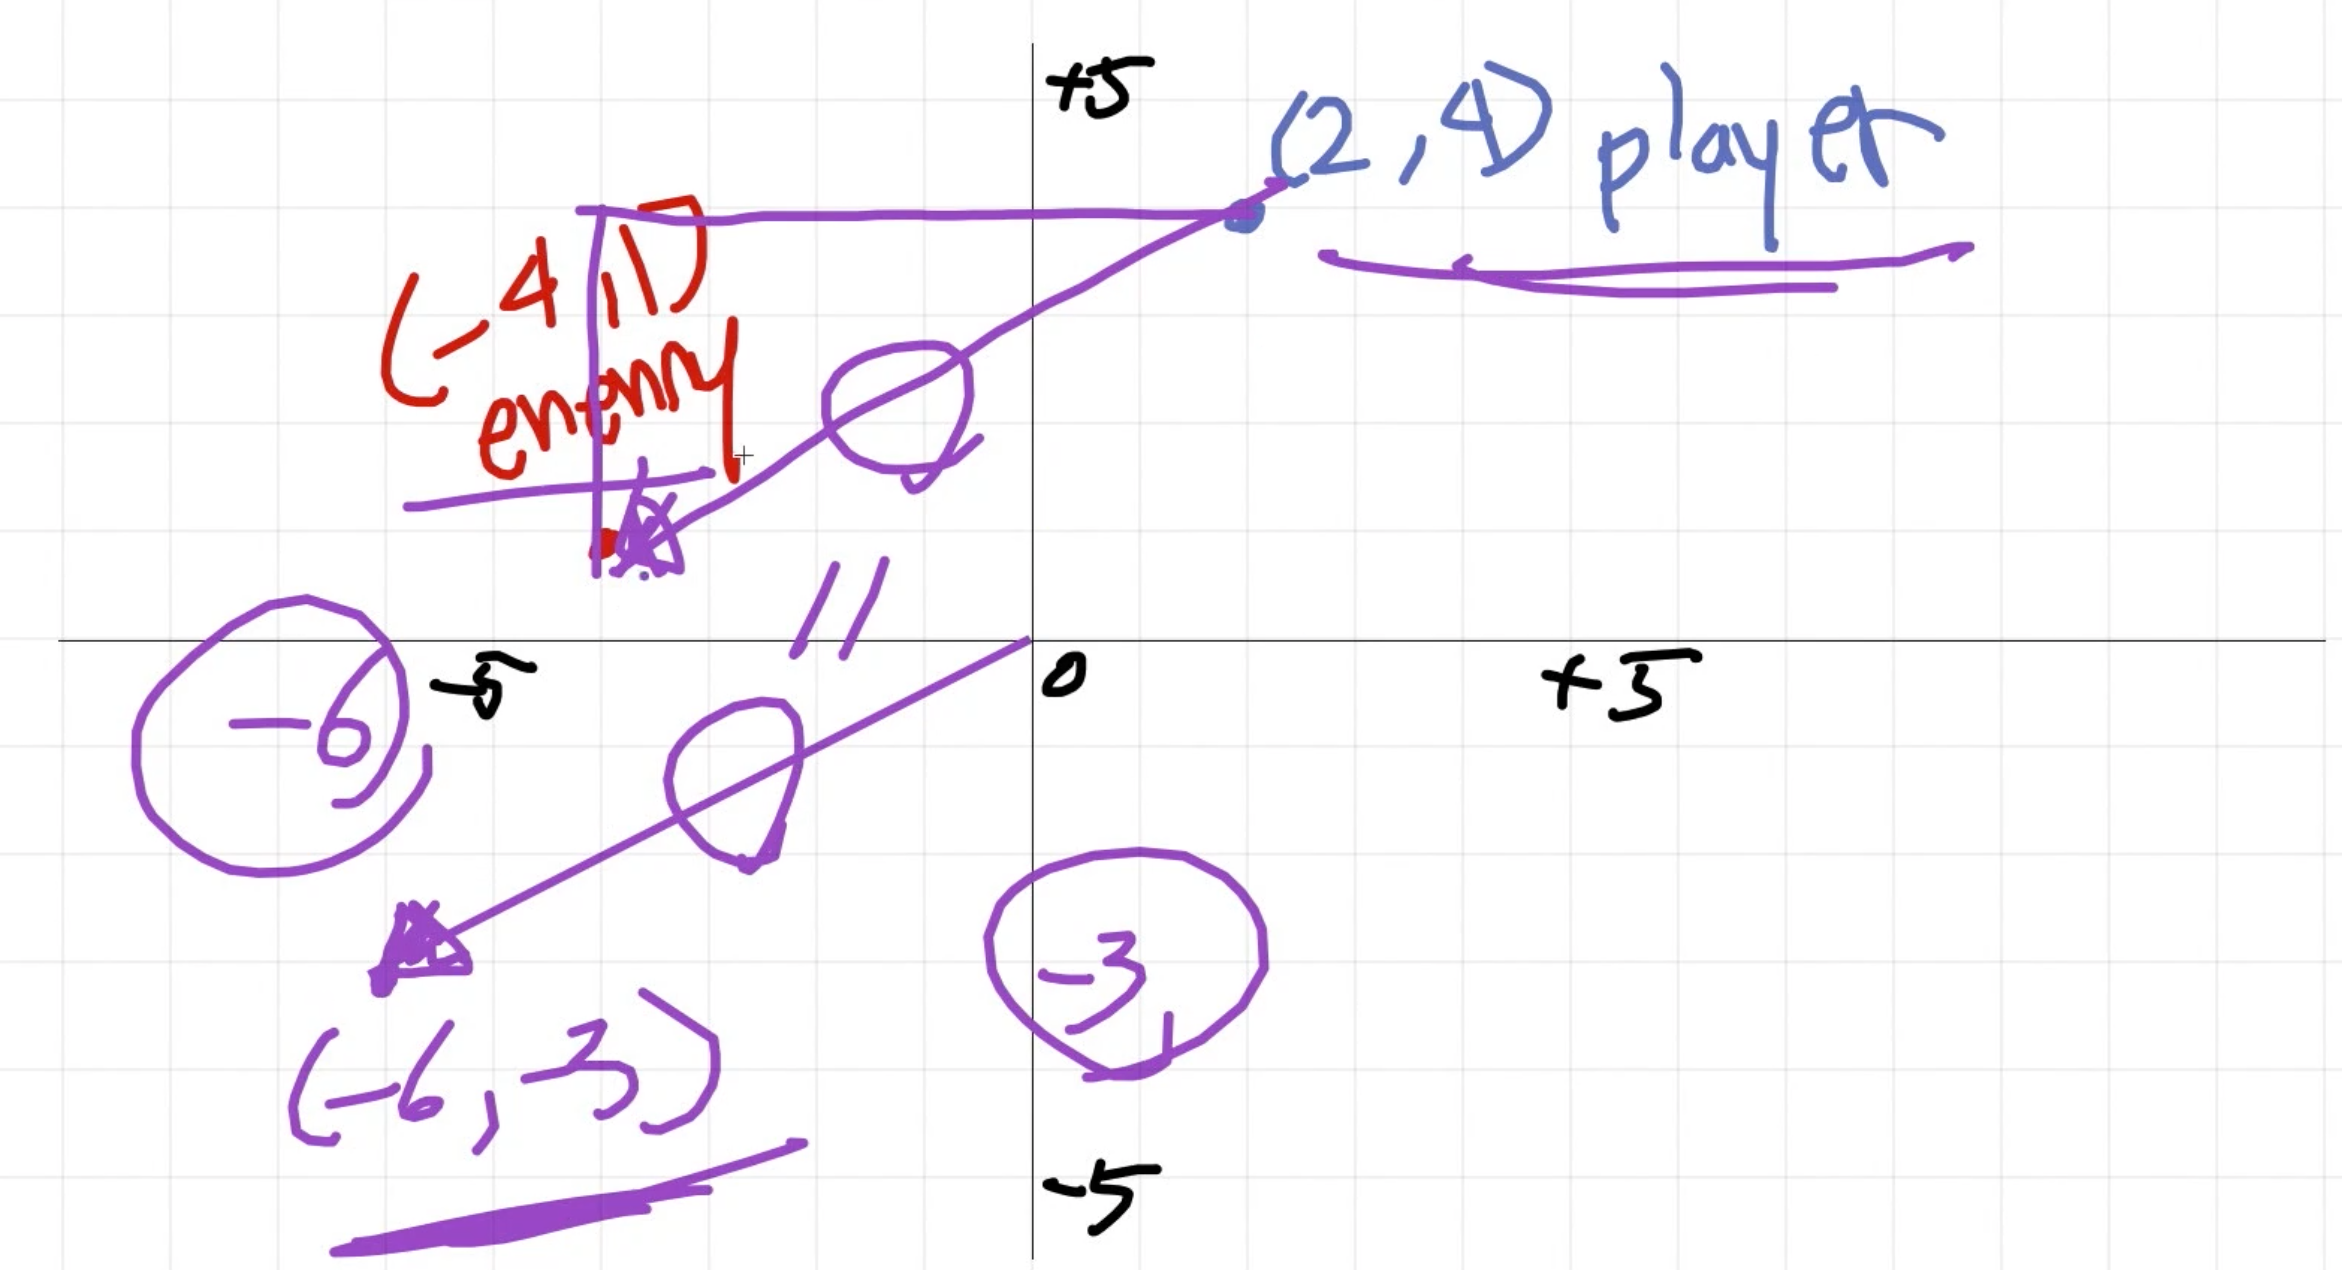 +5
(2,4) player
(-4,1)
enemy
-5
0
+5
-6
-3
(-6,-3)
-5